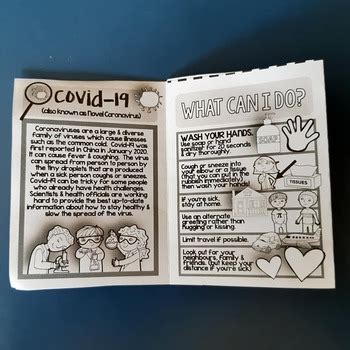 covid-19
(also known as Novel Coronavirus)
Coronaviruses are a large & diverse
family of viruses which cause illnesses
such as the common cold. Covid-19 was
first reported in China in January 2020.
It can cause fever & coughing. The virus
can spread from person to person by
the tiny droplets that are produced
when a sick person coughs or sneezes.
Covid-19 can be tricky for some people
who already have health challenges.
Scientists & health officials are working
hard to provide the best up-to-date
information about how to stay healthy &
slow the spread of the virus.
WHAT CAN I DO?
WASH YOUR HANDS.
Use soap or hand
sanitizer for 20 seconds
& dry thoroughly
Cough or sneeze into
your elbow or a tissue
(that you can put in the
rubbish immediately) -
then wash your hands!
TISSUES
If you're sick,
stay at home.
Use an alternate
greeting rather than
hugging or kissing.
Limit travel if possible.
Look out for your
neighbours, family &
friends. (but keep your
distance if you're sick)